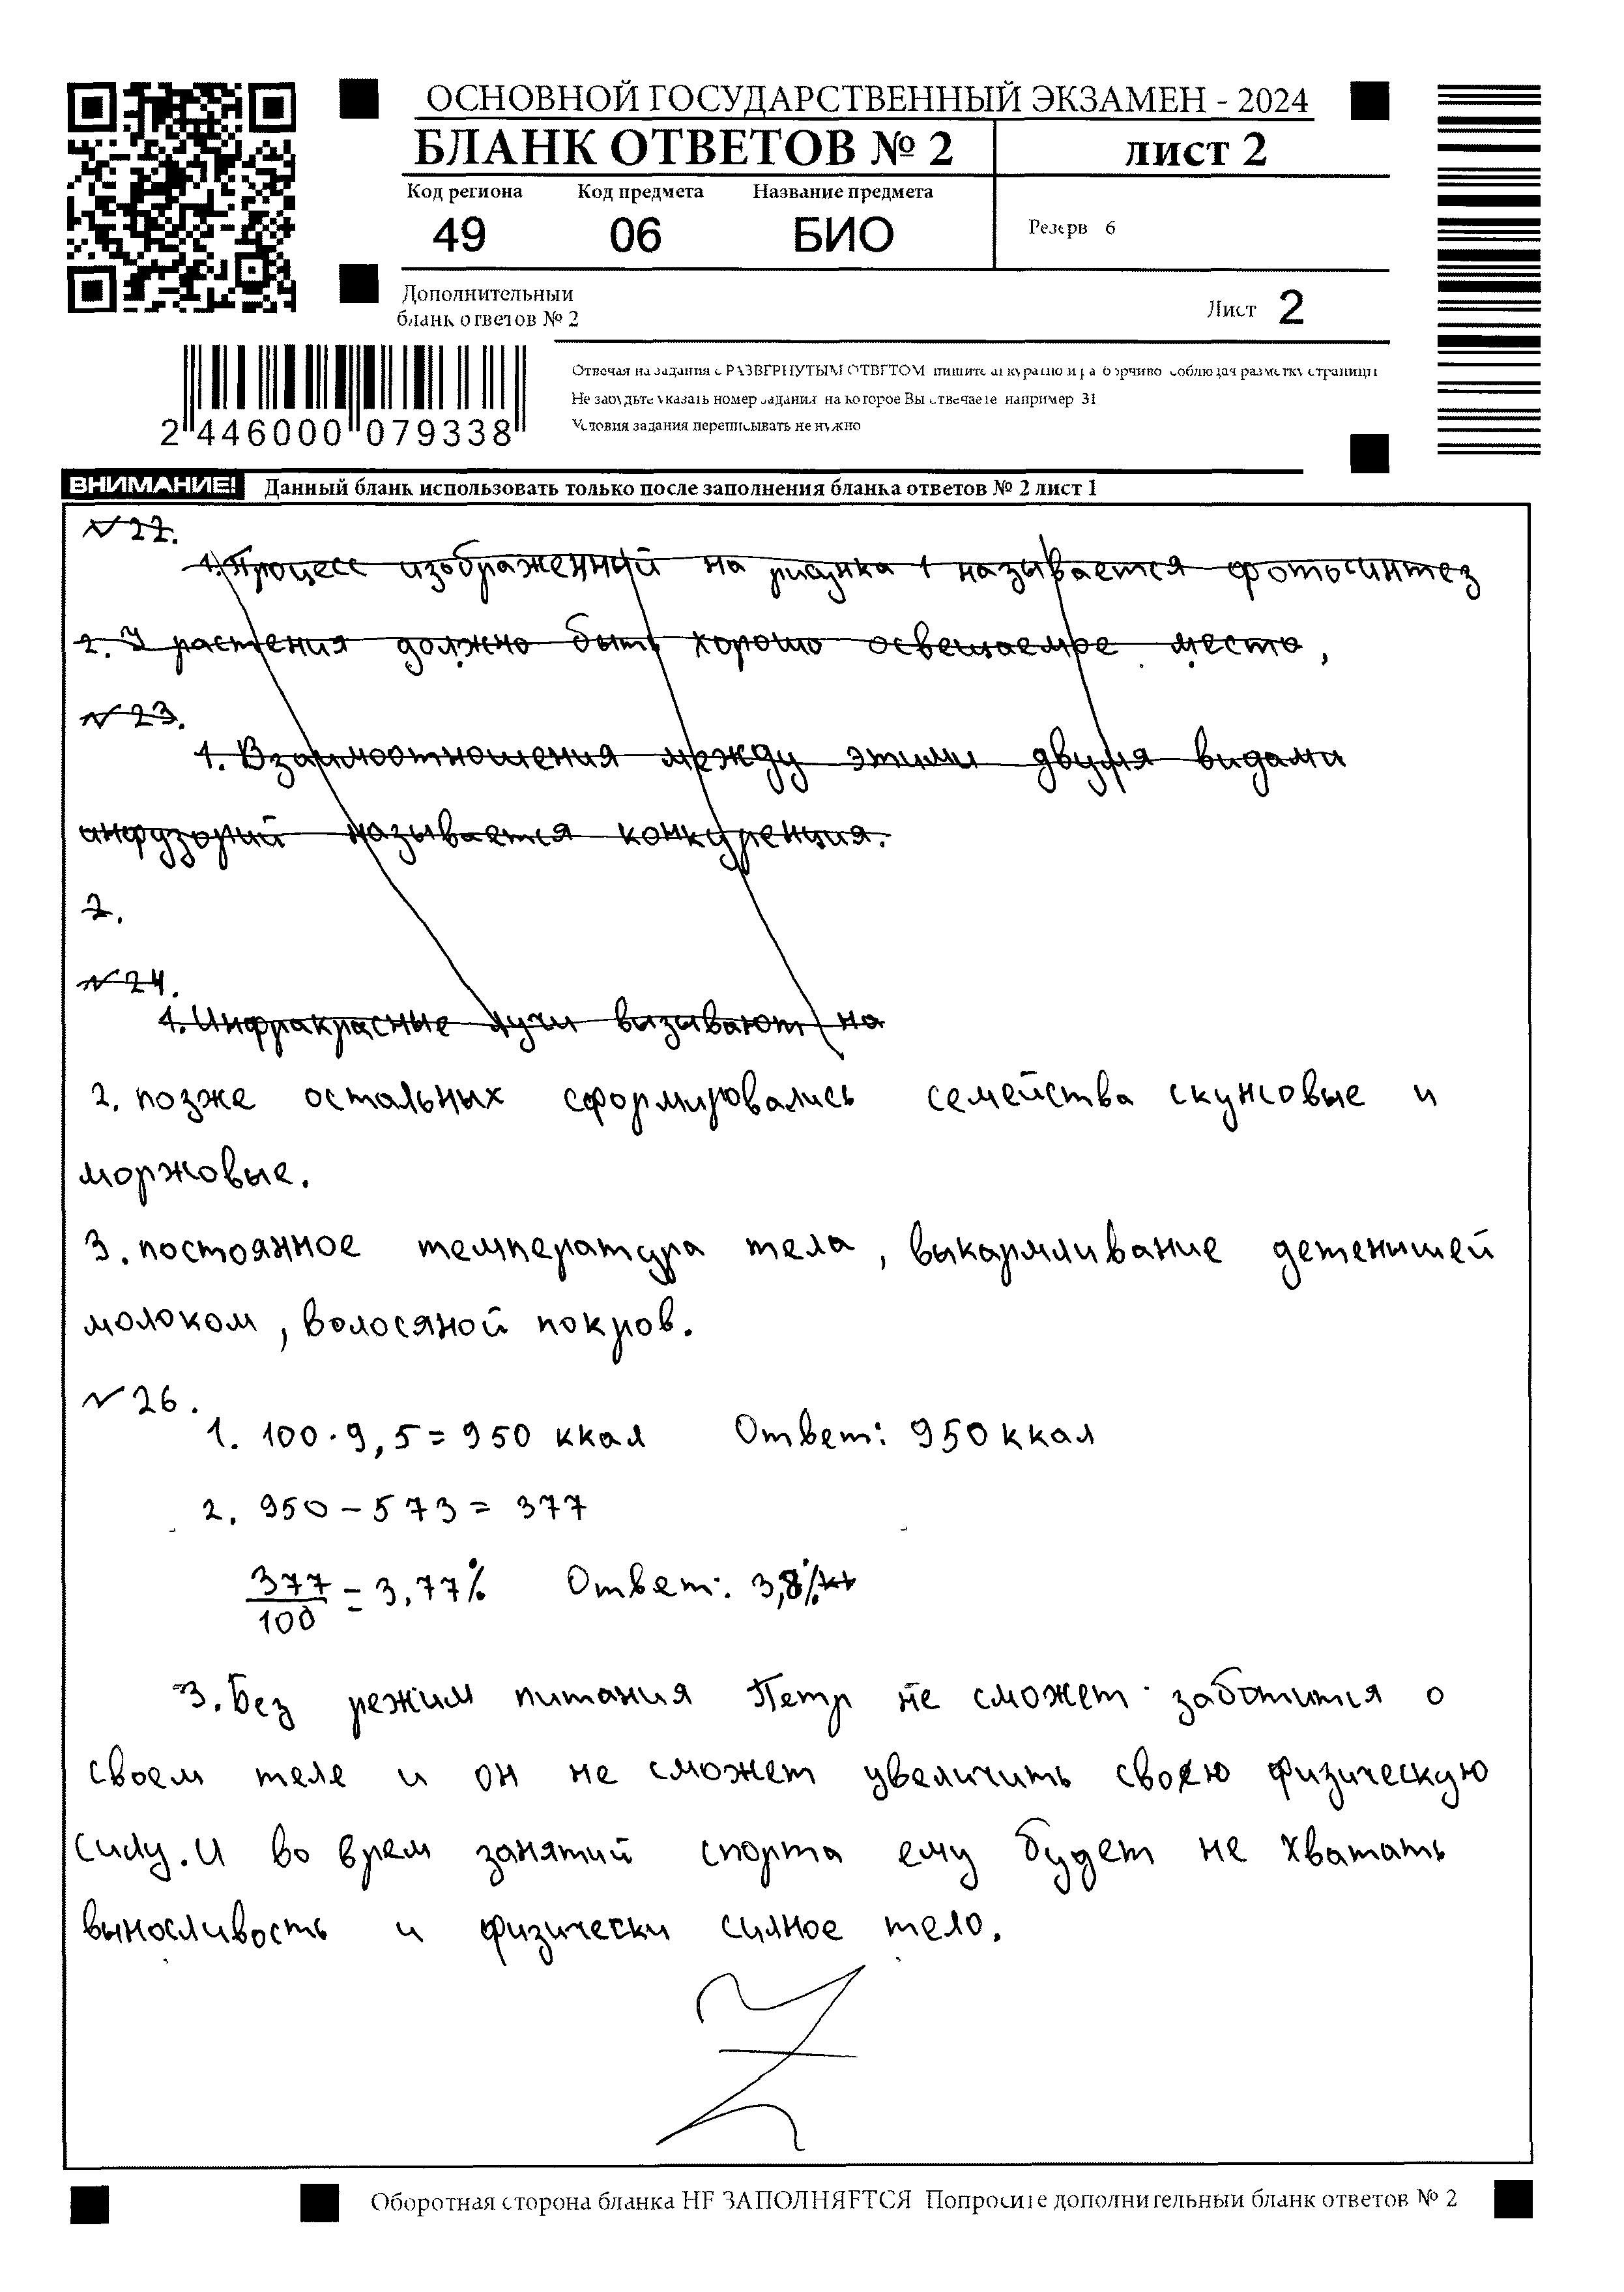 ОСНОВНОЙ ГОСУДАРСТВЕННЫЙ ЭКЗАМЕН - 2024
БЛАНК ОТВЕТОВ № 2 лист 2
Код региона Код предмета Название предмета
49 06 БИО
Резерв 6
Дополнительный
бланк ответов № 2
Лист 2
Отвечая на задания с РАЗВЕРНУТЫМ ОТВЕТОМ пишите аккуратно и разборчиво соблюдая разметку страницы
Не забудьте указать номер задания на которое Вы отвечаете например 31
Условия задания переписывать не нужно
2 446000 079338
ВНИМАНИЕ! Данный бланк использовать только после заполнения бланка ответов № 2 лист 1
№ 22.
1. Процесс изображенный на рисунка 1 называется фотосинтез
2. У растения должно быть хорошо освещаемое место,
№ 23.
1. Взаимоотношения между этими двумя видами
инфузорий называется конкуренция.
2.
№ 24.
1. Инфракрасные лучи визывают на
2. позже остальных сформировались семейства скунсовые и
моржовые.
3. постоянное температура тела, выкармливание детенышей
молоком, волосяной покров.
№ 26.
1. 100·9,5=950 ккал Ответ: 950 ккал
2. 950-573=377
377/100=3,77% Ответ: 3,8%
3. Без режим питания Петр не сможет заботится о
своем теле и он не сможет увеличить свою физическую
силу. И во врем занятий спорта ему будет не хватать
выносливость и физически силное тело.
Оборотная сторона бланка НЕ ЗАПОЛНЯЕТСЯ Попросите дополнительный бланк ответов № 2